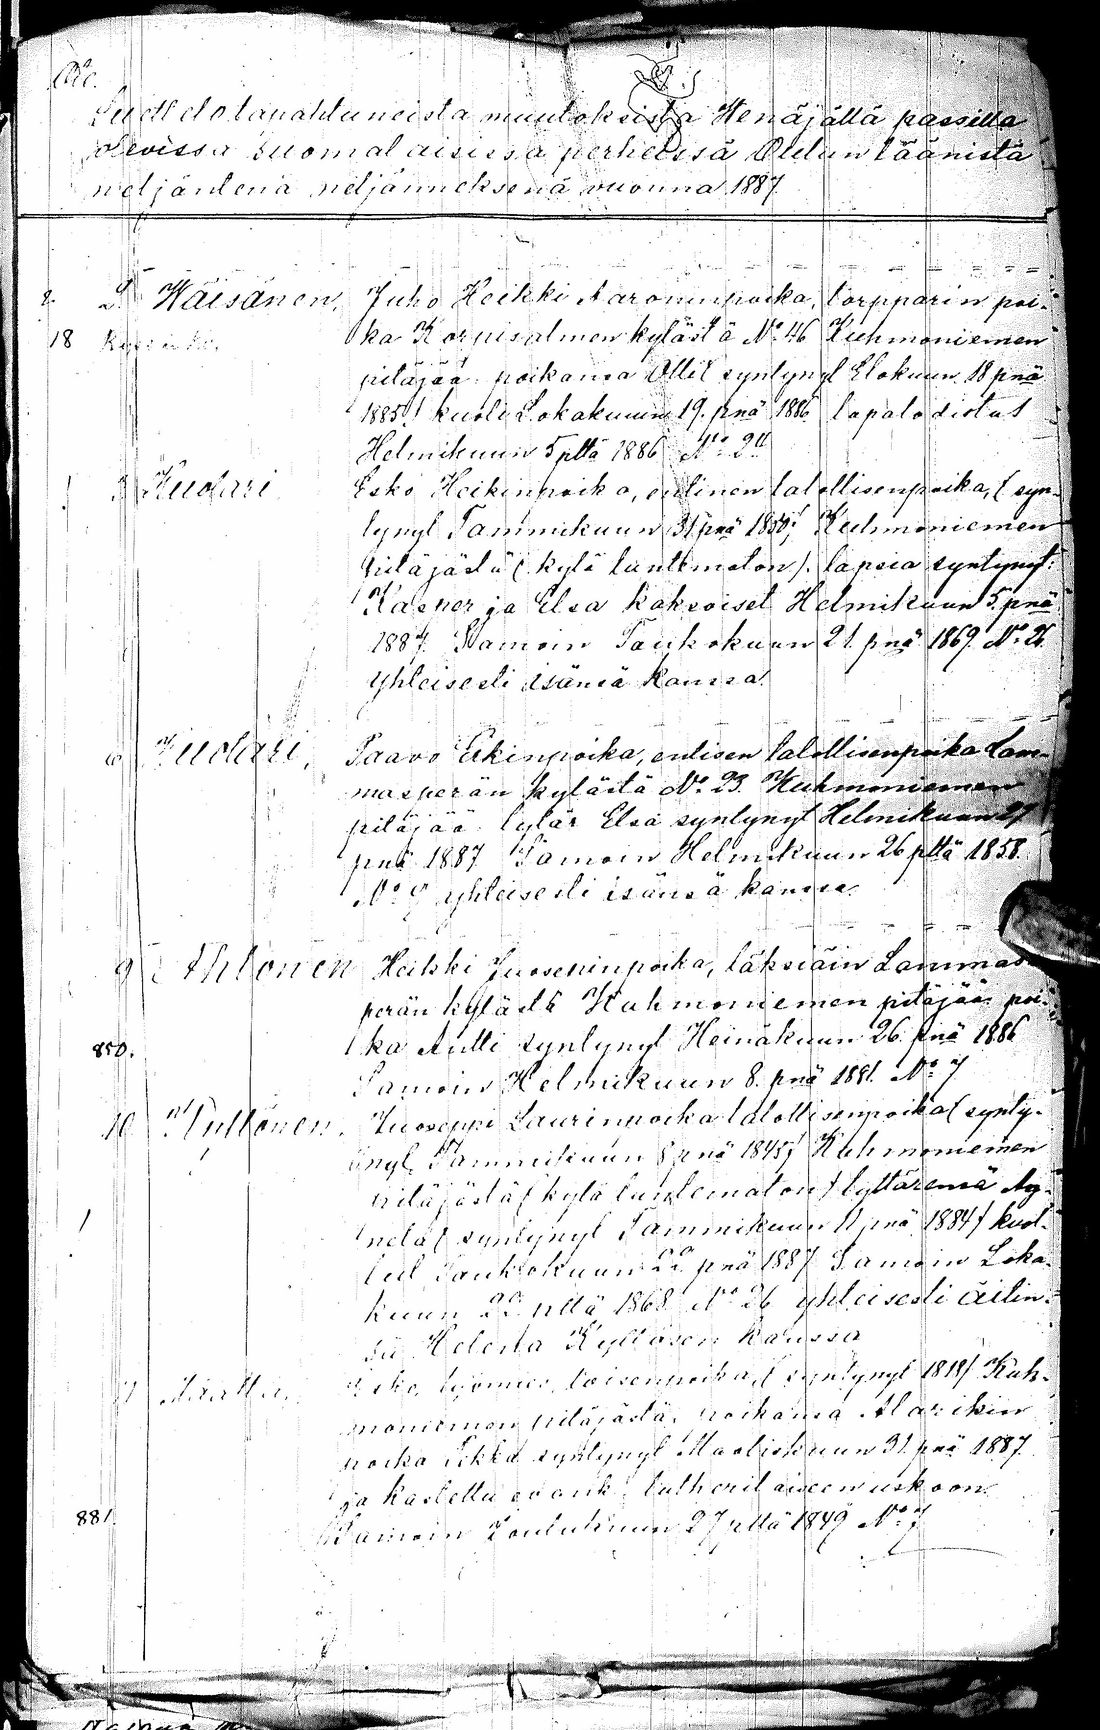 Luettelo tapahtuneista muutoksista Wenäjällä passilla
olevissa suomalaisissa perheissä Oulun läänistä
neljäntenä neljänneksenä vuonna 1887
2 Wäisänen, Juho Heikki Aaroninpoika, torpparin poi-
18 ka Korpisalmen kylästä No 46 Kuhmoniemen
pitäjää poikansa Olli syntynyt Elokuun 18 pnä
1885 kuoli Lokakuun 19. pnä 1886
Helmikuun 5 pltä 1886 No
Esko Heikinpoika, entinen talollisenpoika, (syn-
tynyt Tammikuun 31 pnä 1850) Kuhmoniemen
pitäjästä (kylä tuntematon). lapsia syntynyt:
Kasper ja Elsa kaksoiset Helmikuun 5. pnä
1887. Samoin Toukokuun 21. pnä 1869 No 26
yhteisesti isänsä kanssa.
6 Paavo Erkinpoika, entisen talollisenpoika Lam-
masperän kylästä No 23. Kuhmoniemen
pitäjää tytär Elsa syntynyt Helmikuun 27
pnä 1887 Samoin Helmikuun 26 pltä 1858.
No 9 yhteisesti isänsä kanssa.
9 Ahtonen Heikki Juoseppinpoika, läksiäin Lammas-
perän kylästä Kuhmoniemen pitäjää poi-
850. ka Antti syntynyt Heinäkuun 26. pnä 1886
Samoin Helmikuun 8. pnä 1881. No 7
10 Kyllönen. Juoseppi Laurinpoika talollisenpoika (synty-
nyt Tammikuun 8 pnä 1845) Kuhmoniemen
pitäjästä (kylä tuntematon) tyttärensä Ag-
neta (syntynyt Tammikuun 11 pnä 1884) kuol-
lut Toukokuun 22 pnä 1887 Samoin Loka-
kuun 22 pltä 1868 No 26 yhteisesti äitin-
sä Helena Kyllösen kanssa
työmies, loisenpoika, (syntynyt 1818) Kuh-
moniemen pitäjästä, poikansa
poika Pekka syntynyt Maaliskuun 31. pnä 1887.
ja kastettu evank. lutherilaiseen uskoon.
881. Samoin Joulukuun 27 pltä 1849 No 7